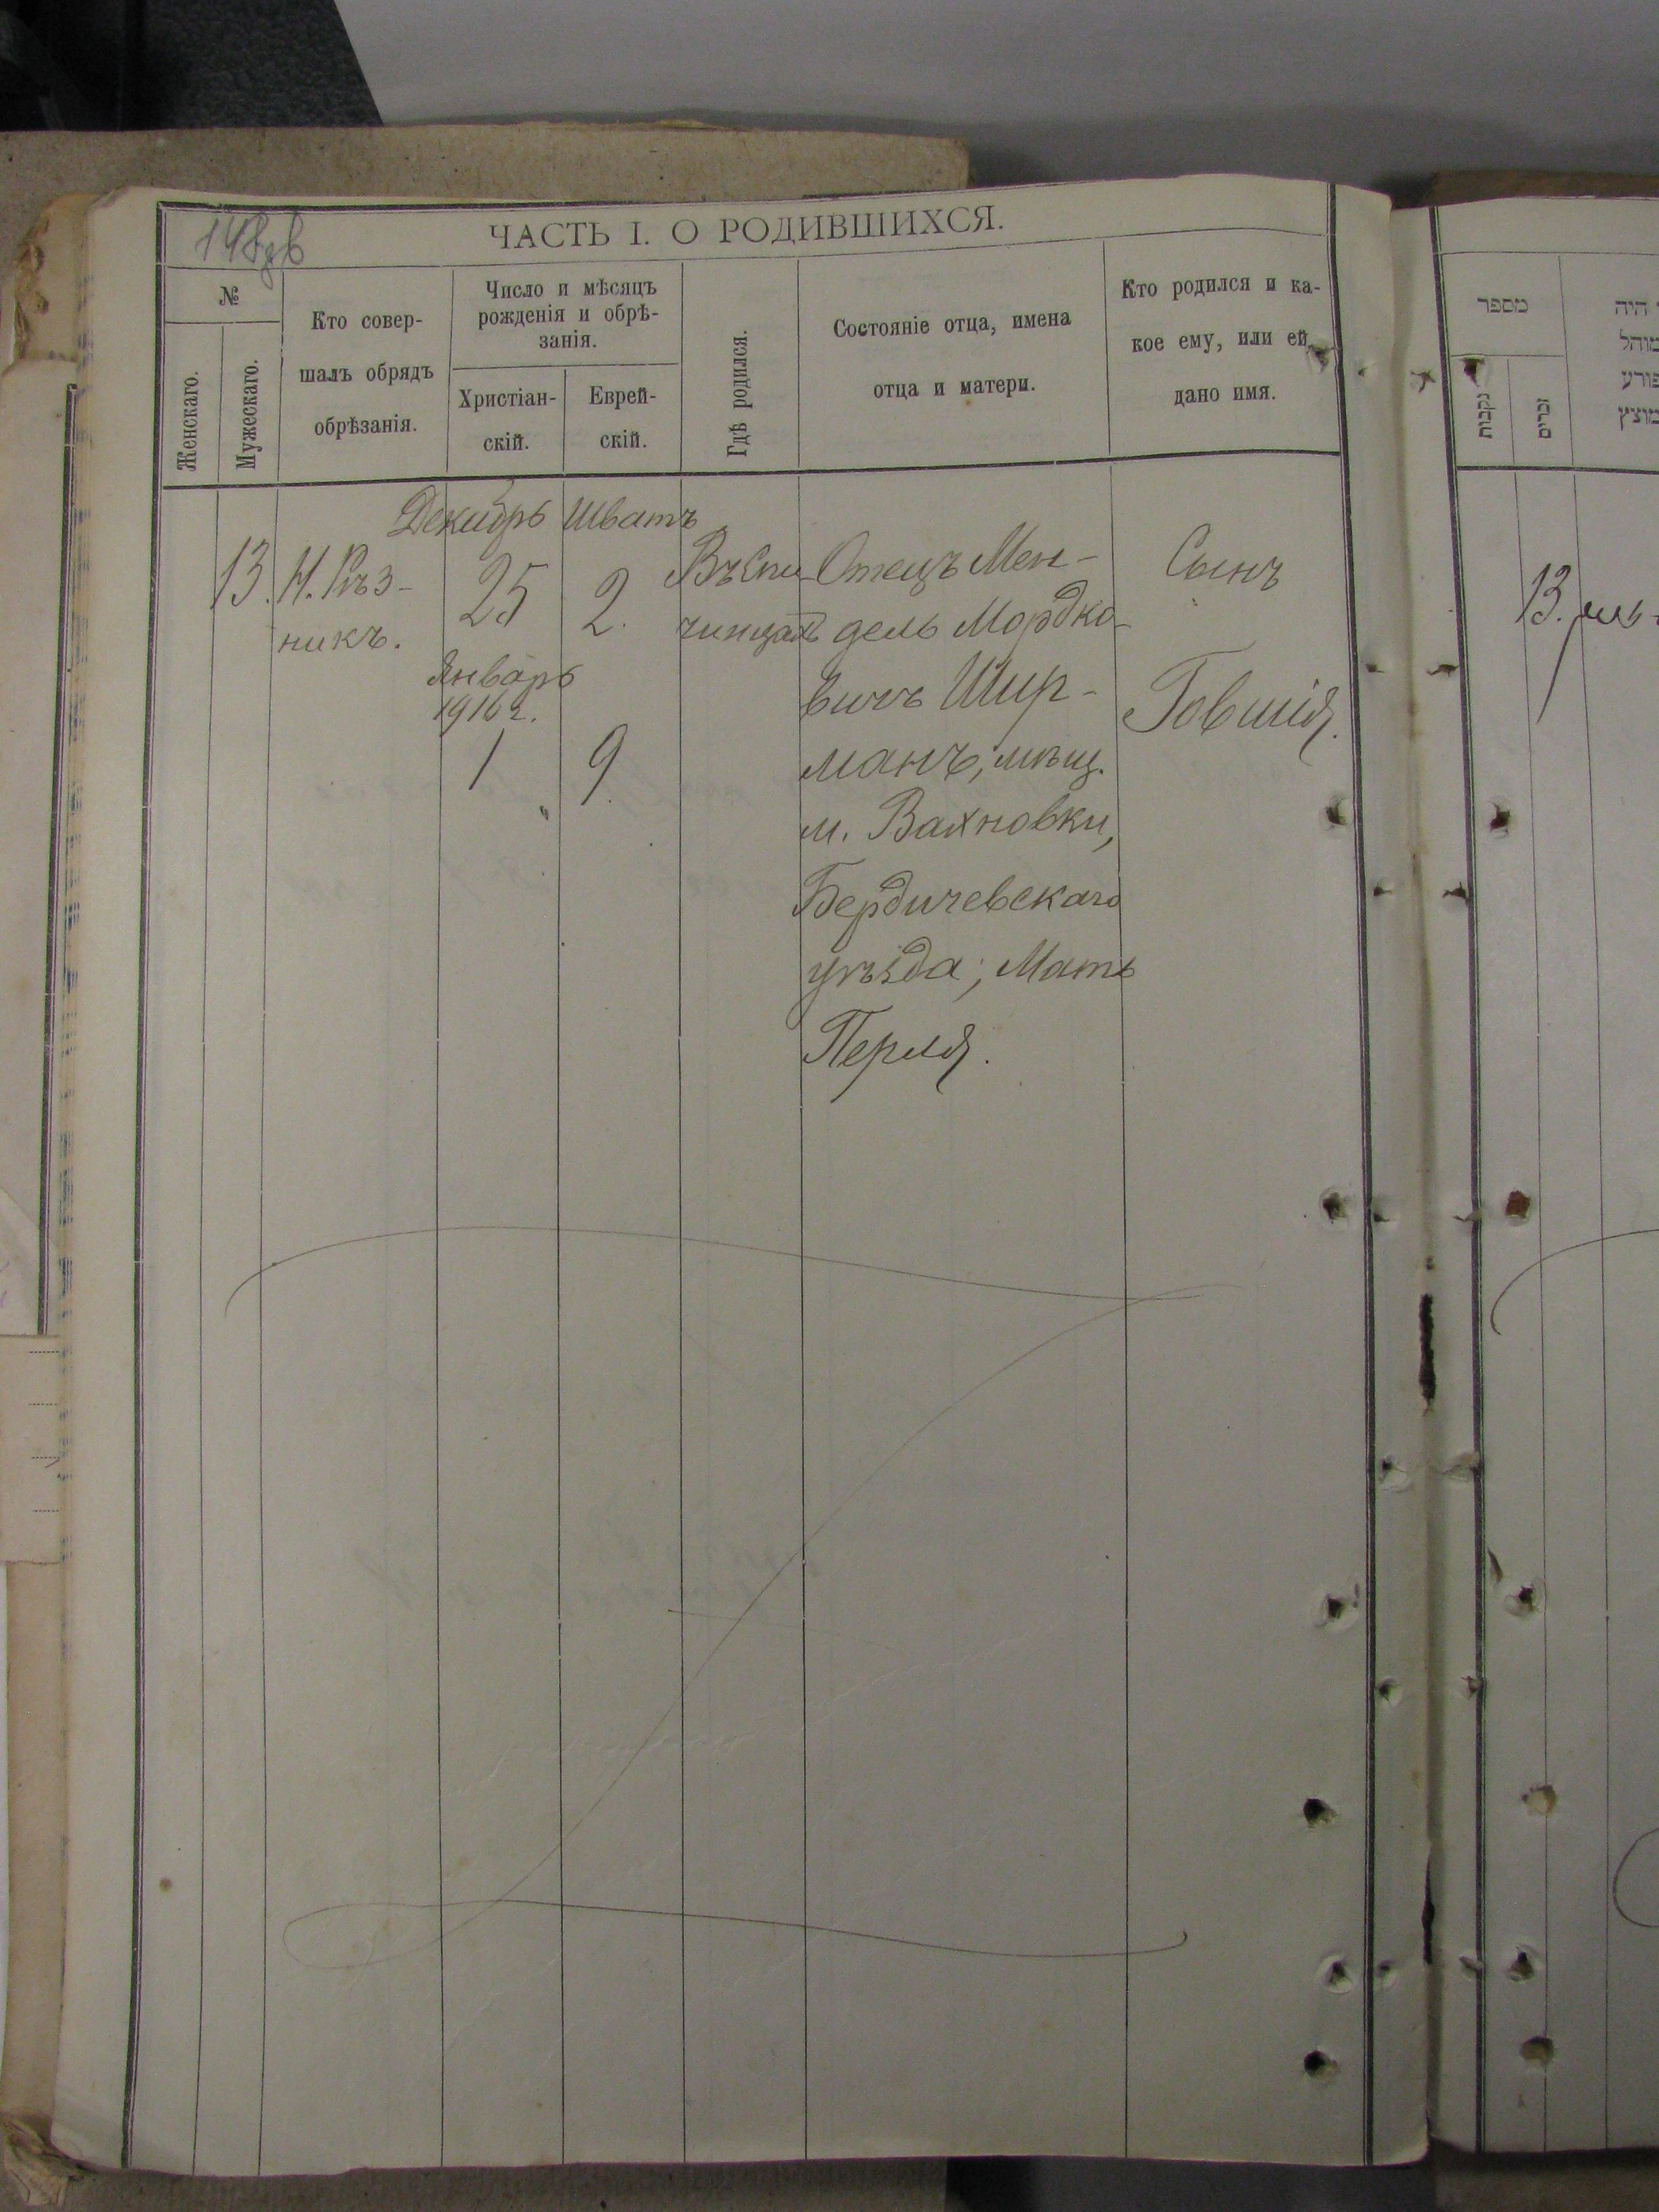 ЧАСТЬ I. О РОДИВШИХСЯ.
№
Женскаго.
Мужескаго.
Кто совер-
шалъ обрядъ
обрѣзанія.
Число и мѣсяцъ
рожденія и обрѣ-
занія.
Христіан-
скій.
Еврей-
скій.
Гдѣ родился.
Состояніе отца, имена
отца и матери.
Кто родился и ка-
кое ему, или ей
дано имя.
Декабрь Шватъ
13. Н. Рѣз-
никъ.
25
2.
Январь
1916 г.
1
9
Въ Спи-
чинцахъ
Отецъ Мен-
дель Мордко-
вичъ Шир-
манъ, мѣщ.
м. Вахновки,
Бердичевскаго
уѣзда; Мать
Перля.
Сынъ
Говшія.
מספר
נקבות
זכרים
היה
מוהל
פורע
מוצץ
13.